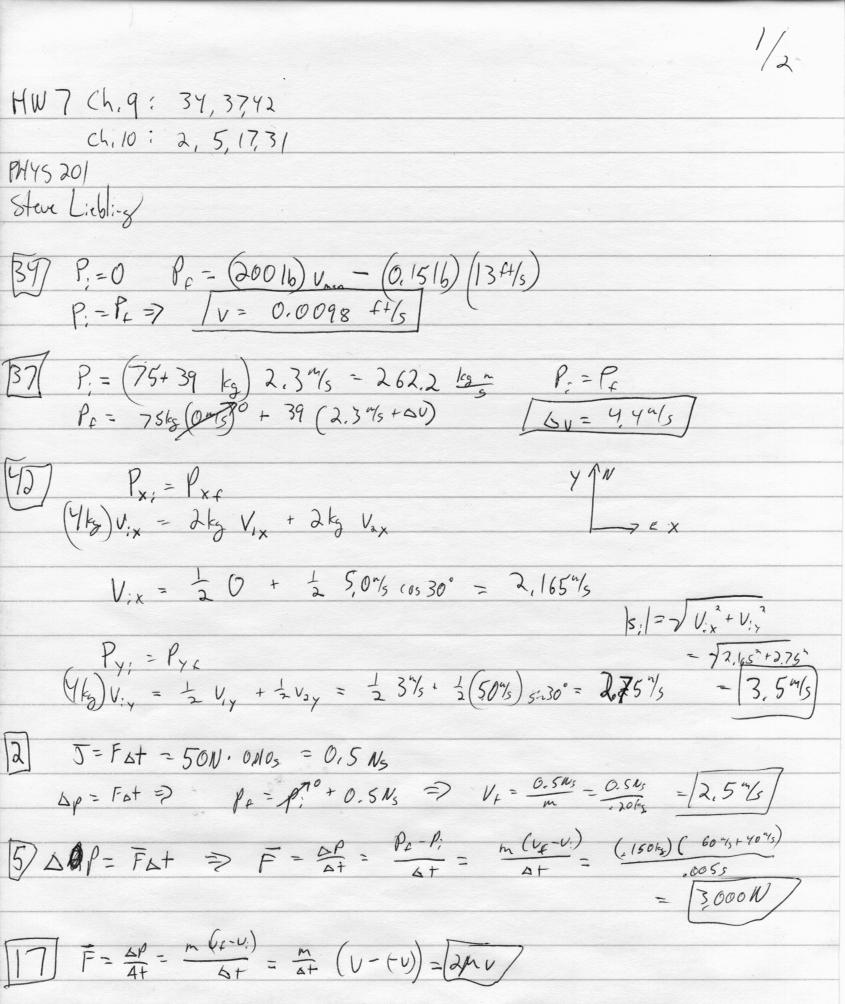 1/2
HW 7 Ch. 9 : 34, 37, 42
Ch. 10 : 2, 5, 17, 31
PHYS 201
Steve Liebling
34 P_i = 0 P_f = (200 lb) v_man − (0.15 lb) (13 ft/s)
P_i = P_f ⇒ v = 0.0098 ft/s
37 P_i = (75 + 39 kg) 2.3 m/s = 262.2 kg m/s P_i = P_f
P_f = 75 kg (0 m/s)→0 + 39 (2.3 m/s + Δv) Δv = 4.4 m/s
42 P_xi = P_xf y N
(4kg) v_ix = 2kg v_1x + 2kg v_2x E x
v_ix = 1/2 0 + 1/2 5.0 m/s cos 30° = 2.165 m/s
|s_i| = √(v_ix² + v_iy²)
P_yi = P_yf = √(2.165² + 2.75²)
(4kg) v_iy = 1/2 v_1y + 1/2 v_2y = 1/2 3 m/s + 1/2 (5.0 m/s) sin 30° = 2.75 m/s = 3.5 m/s
2 J = FΔt = 50N · 0.010s = 0.5 Ns
Δp = FΔt ⇒ p_f = p_i→0 + 0.5 Ns ⇒ v_f = 0.5 Ns/m = 0.5 Ns/.20kg = 2.5 m/s
5 Δp = F̄Δt ⇒ F̄ = Δp/Δt = (P_f − P_i)/Δt = m (v_f − v_i)/Δt = (.150kg)(60 m/s + 40 m/s)/.005s
= 3,000 N
17 F̄ = Δp/Δt = m (v_f − v_i)/Δt = m/Δt (v − (−v)) = 2μv